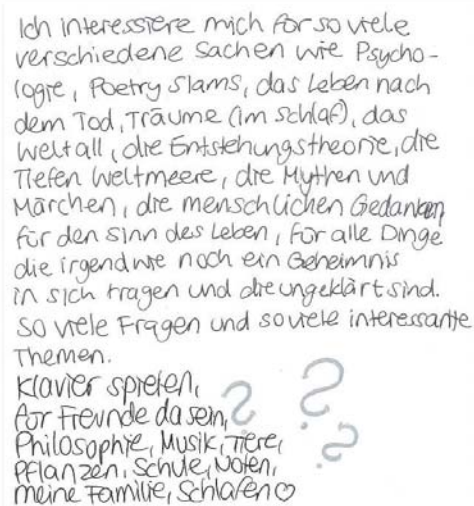 Ich interessiere mich für so viele
verschiedene Sachen wie Psycho-
logie, Poetry Slams, das Leben nach
dem Tod, Träume (im Schlaf), das
Weltall, die Entstehungstheorie, die
Tiefen Weltmeere, die Mythen und
Märchen, die menschlichen Gedanken
für den Sinn des Leben, für alle Dinge
die irgendwie noch ein Geheimnis
in sich tragen und die ungeklärt sind.
So viele Fragen und so viele interessante
Themen.
Klavier spielen,
für Freunde da sein, ?
Philosophie, Musik, Tiere, ?
Pflanzen, Schule, Noten, ?
meine Familie, Schlafen ♡